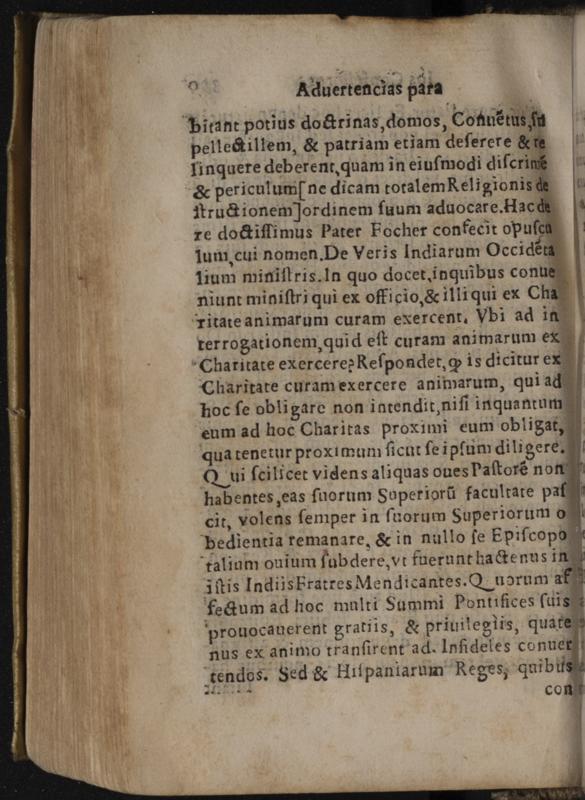 Aduertencias para
bitant potius doctrinas,domos, Conuẽtus,su
pellectillem, & patriam etiam deserere & re
linquere deberent,quam in eiusmodi discrimẽ
& periculum[ne dicam totalem Religionis de
structionem]ordinem suum aduocare.Hac de
re doctissimus Pater Focher confecit opuscu
lum,cui nomen.De Veris Indiarum Occidẽta
lium ministris.In quo docet,inquibus conue
niunt ministri qui ex officio,& illi qui ex Cha
ritate animarum curam exercent. Vbi ad in
terrogationem,quid est curam animarum ex
Charitate exercere?Respondet,ꝙ is dicitur ex
Charitate curam exercere animarum, qui ad
hoc se obligare non intendit,nisi inquantum
eum ad hoc Charitas proximi eum obligat,
qua tenetur proximum sicut se ipsum diligere.
Qui scilicet videns aliquas oues Pastorẽ non
habentes,eas suorum Superiorũ facultate pas
cit, volens semper in suorum Superiorum o
bedientia remanare, & in nullo se Episcopo
talium ouium subdere,vt fuerunt hactenus in
istis Indiis Fratres Mendicantes.Quorum af
fectum ad hoc multi Summi Pontifices suis
prouocauerent gratiis, & priuilegiis, quate
nus ex animo transirent ad. Infideles conuer
tendos. Sed & Hispaniarum Reges, quibus
con